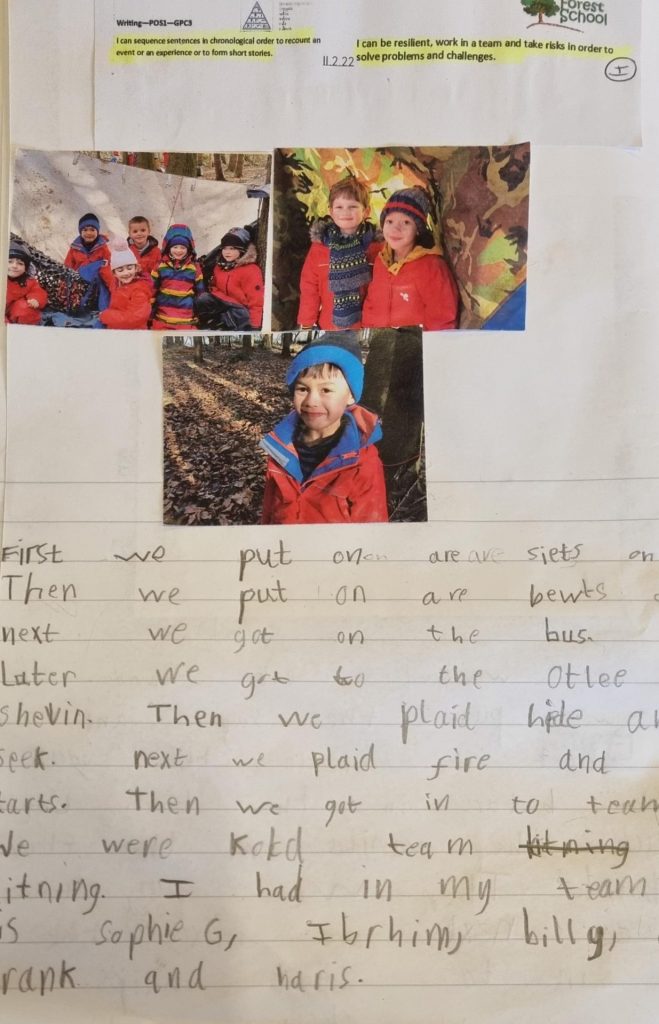 Forest
School
Writing—POS1—GPC3
I can sequence sentences in chronological order to recount an
event or an experience or to form short stories.
11.2.22
I can be resilient, work in a team and take risks in order to
solve problems and challenges.
I
First we put on on are are siets on
Then we put on are bewts
next we got on the bus.
Later we got to the Otlee
shevin. Then we plaid hide an
seek. next we plaid fire and
tarts. Then we got in to team
We were Kold team litning
litning. I had in my team
is Sophie G, Ibrhim, billy,
frank and haris.